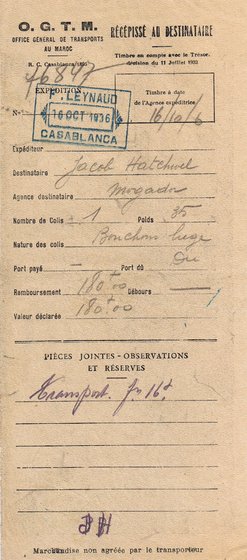 O. G. T. M.
OFFICE GÉNÉRAL DE TRANSPORTS
AU MAROC
R. C. Casablanca
RÉCÉPISSÉ AU DESTINATAIRE
Timbre en compte avec le Trésor.
décision du 11 Juillet 1933
76847
EXPÉDITION
N°
F. LEYNAUD
16 OCT 1936
CASABLANCA
Timbre à date
de l'Agence expéditrice
16/10/6
Expéditeur
Destinataire Jacob Hatchwel
Agence destinataire Mogador
Nombre de Colis 1 Poids 35
Nature des colis Bouchons liège
Port payé — Port dû Oui
Remboursement 180 00 Débours —
Valeur déclarée 180 00
PIÈCES JOINTES - OBSERVATIONS
ET RÉSERVES
Transport
Marchandise non agréée par le transporteur